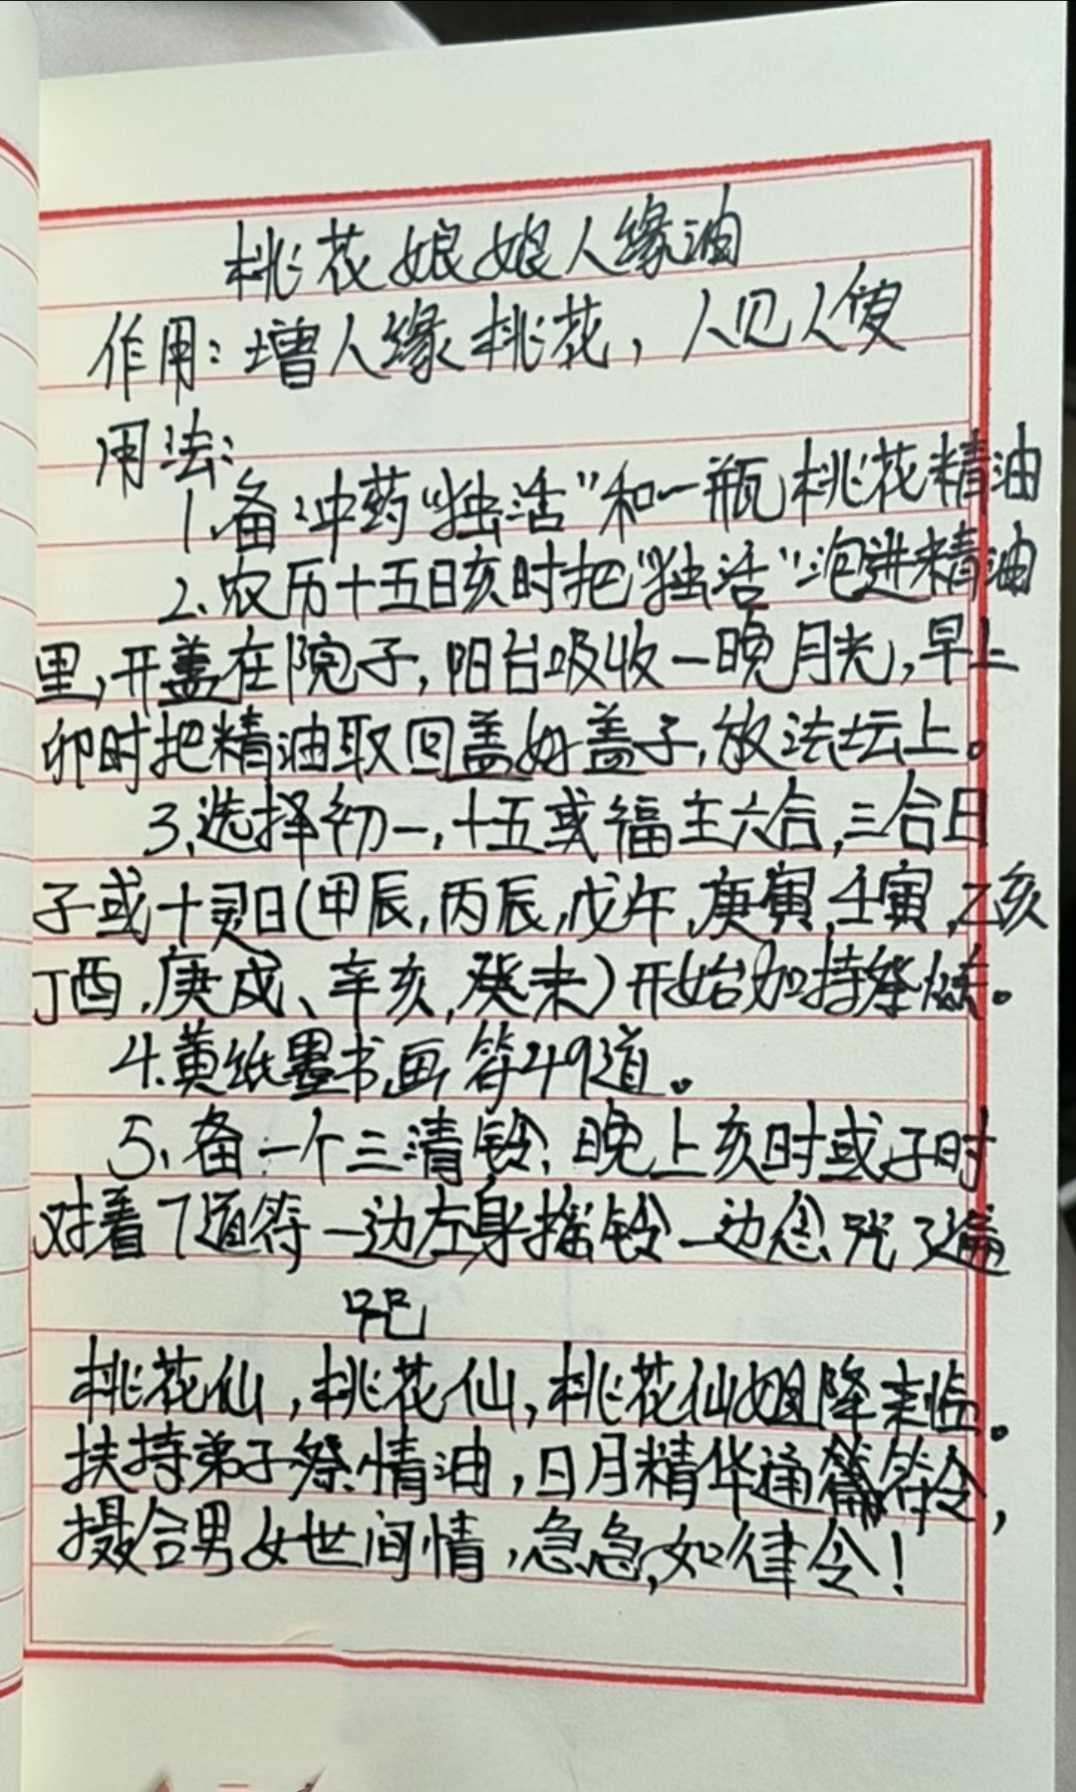 桃花娘娘人缘油
作用：增人缘桃花，人见人爱
用法：
1、备：中药“独活”和一瓶桃花精油
2、农历十五日亥时把“独活”泡进精油
里，开盖在院子，阳台吸收一晚月光，早上
卯时把精油取回盖好盖子，放法坛上。
3、选择初一，十五或福主六合，三合日
子或十灵日（甲辰，丙辰，戊午，庚寅，壬寅，乙亥
丁酉，庚戌、辛亥，癸未）开始加持祭炼。
4、黄纸墨书画符49道。
5、备一个三清铃，晚上亥时或子时
对着7道符一边左身摇铃一边念咒7遍
咒
桃花仙，桃花仙，桃花仙姐降来临。
扶持弟子祭情油，日月精华通符令，
摄合男女世间情，急急如律令！